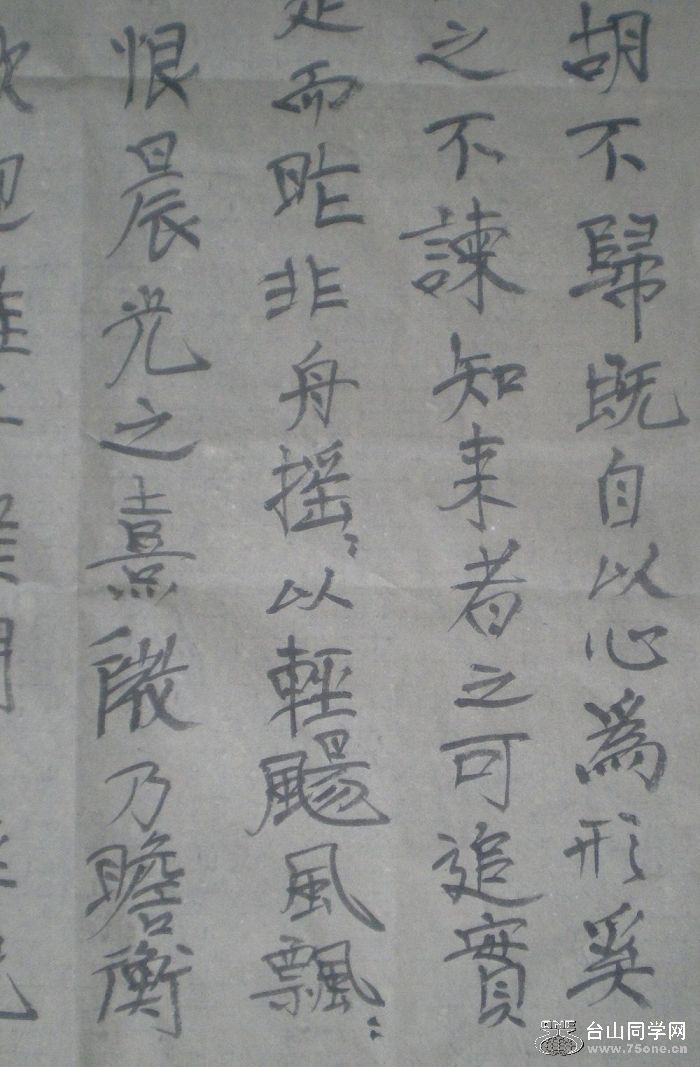 胡不歸既自以心爲形奚
之不諫知来者之可追實
是而昨非舟摇〻以輕颺風飄〻
恨晨光之熹微乃瞻衡
台山同学网
www.75one.cn